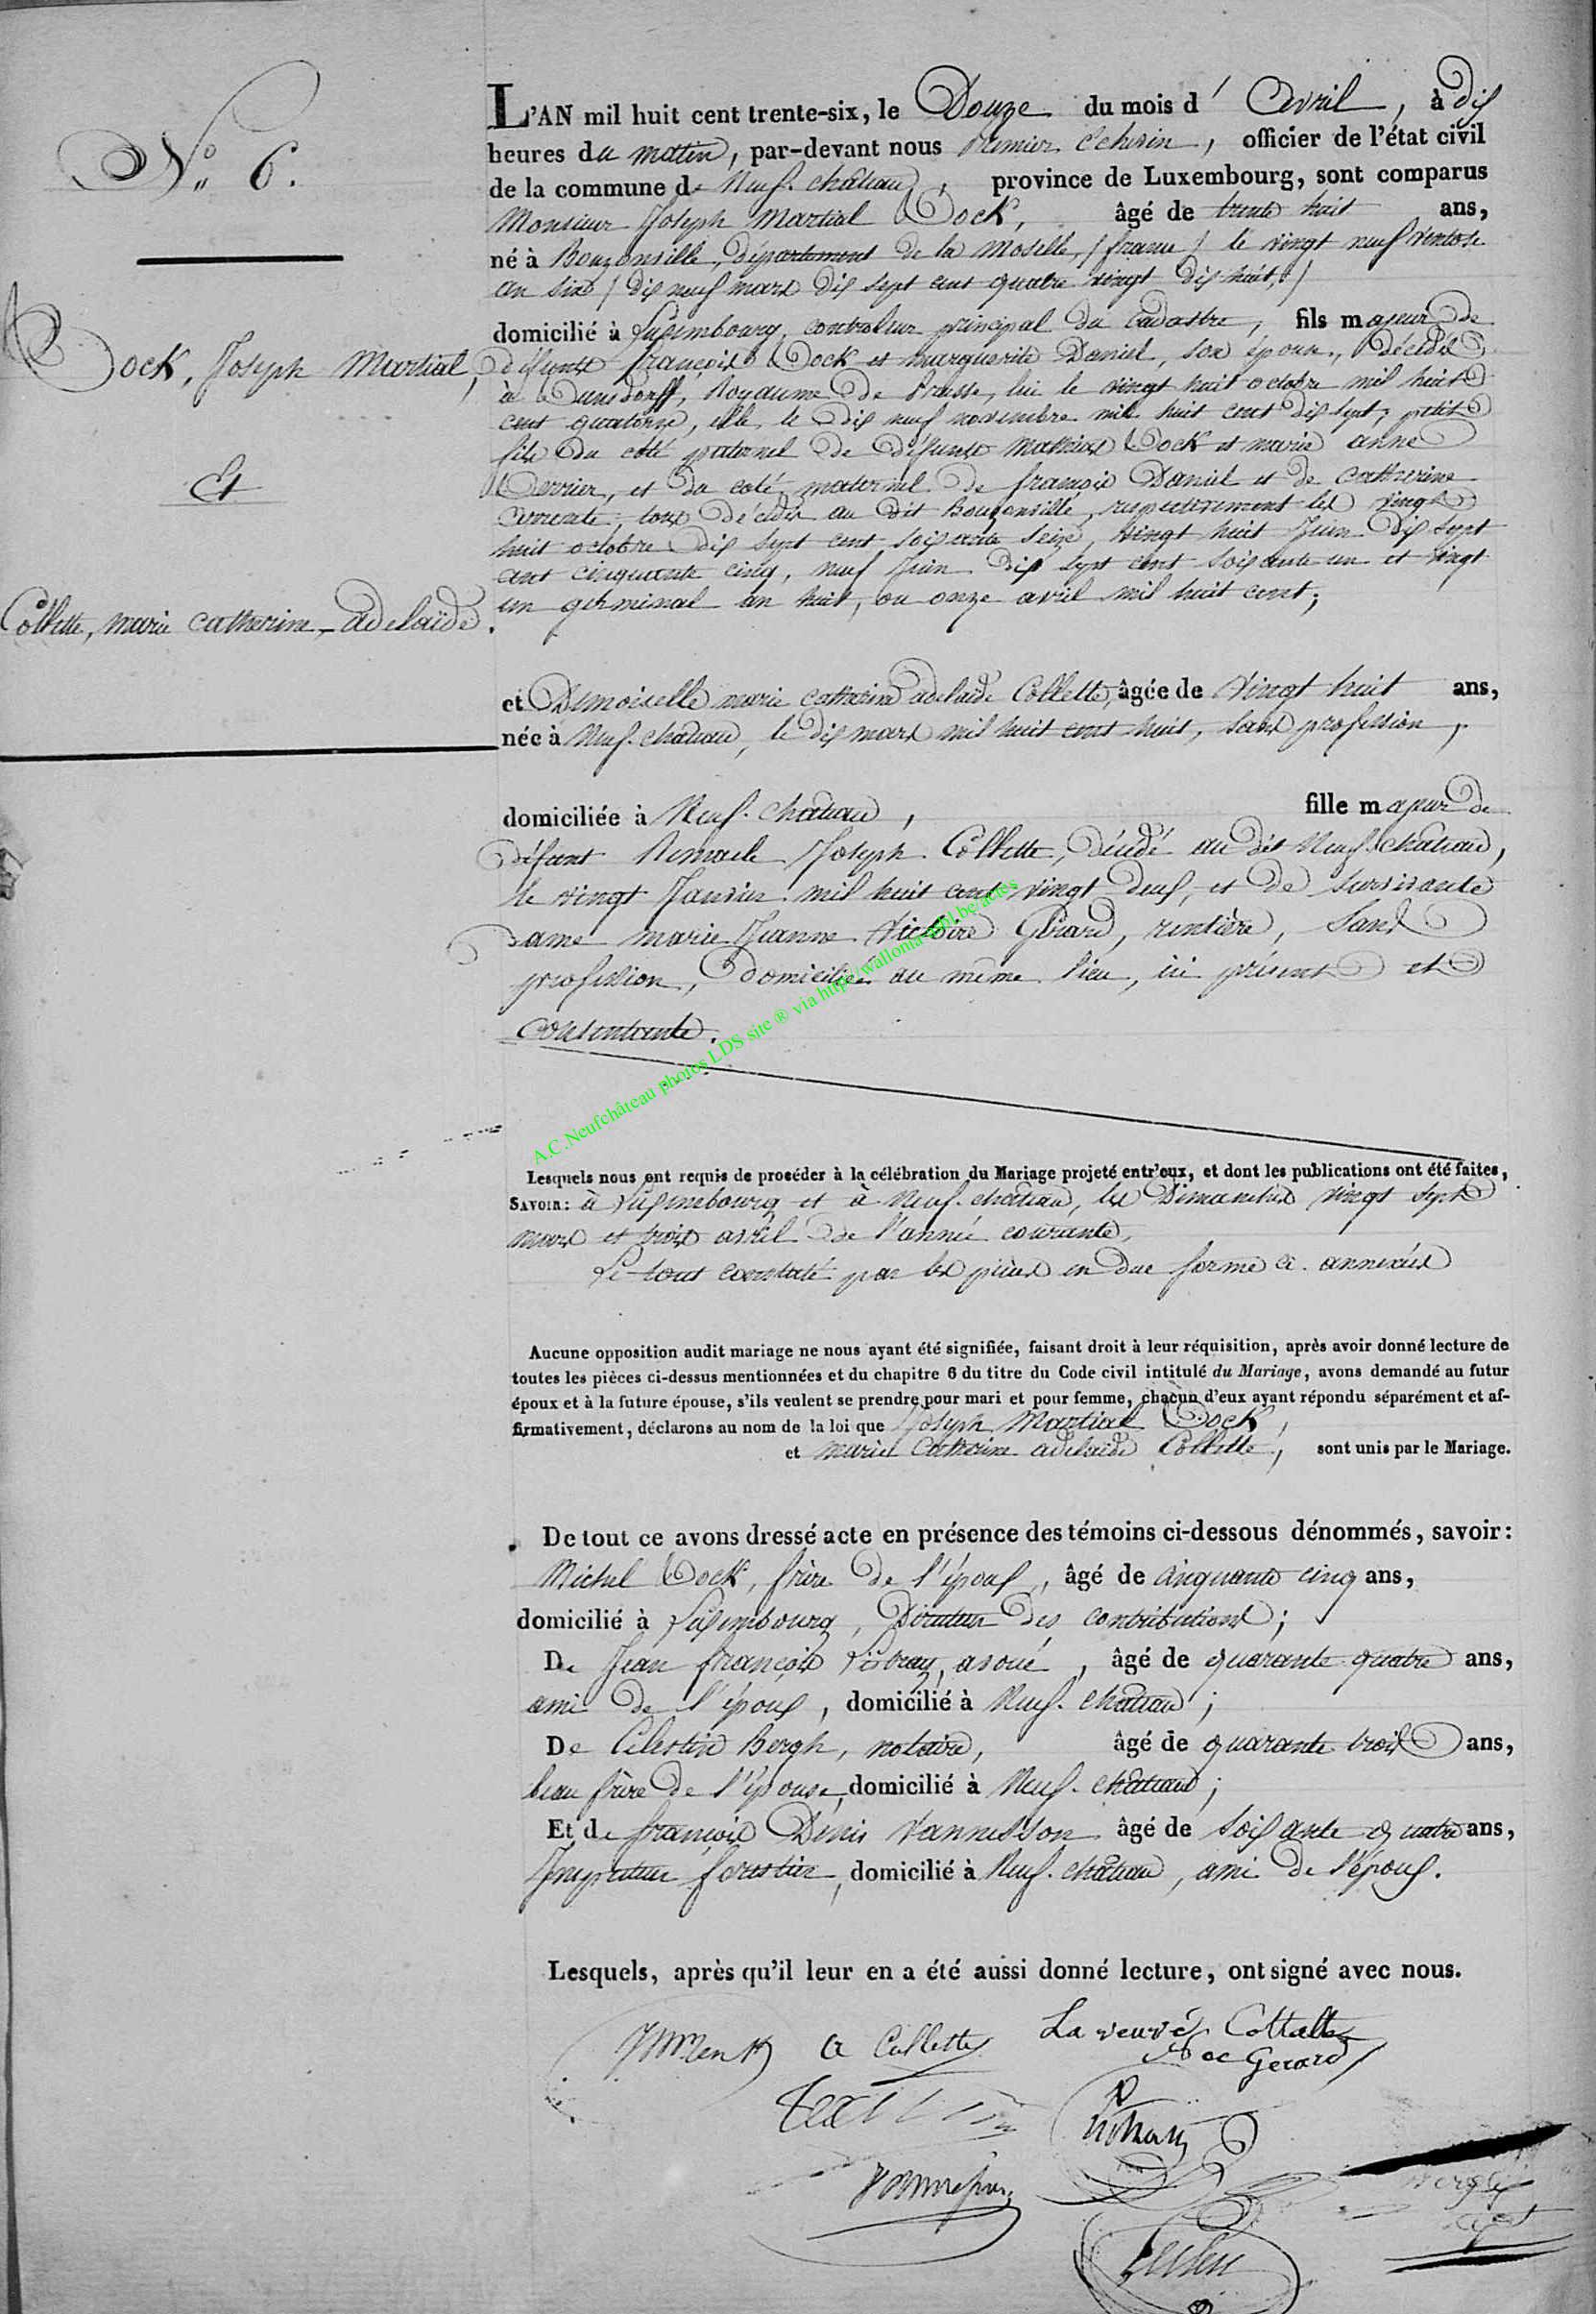 N.° 6.
Bock, Joseph Martial,
Et
Collette, marie catherine adelaïde.
L'AN mil huit cent trente-six, le Douze du mois d' Avril, à dix
heures du matin, par-devant nous premier Echevin, officier de l'état civil
de la commune de Neuf-chateau, province de Luxembourg, sont comparus
Monsieur Joseph Martial Bock, âgé de trente huit ans,
né à Bouzonville, département de la Moselle, (france) le vingt neuf ventose
an six (dix neuf mars dix sept cent quatre vingt dix huit,)
domicilié à Luxembourg, controleur principal du cadastre, fils majeur de
défunts françois Bock et marguerite Daniel, son épouse, décédés
à Dunsdorff, Royaume de Prusse, lui le vingt huit octobre mil huit
cent quatorze, elle le dix neuf novembre mil huit cent dix sept, petit
fils du côté paternel de défunts Mathias Bock et marie anne
et du coté maternel de françois Daniel et de catherine
tous décédés au dit Bouzonville, respectivement les vingt
huit octobre dix sept cent soixante seize, vingt huit Juin dix sept
cent cinquante cinq, neuf Juin dix sept cent soixante un et vingt
un germinal an huit, ou onze avril mil huit cent;
et Demoiselle marie catherine adelaïde Collette, âgée de vingt huit ans,
née à Neuf-chateau, le dix mars mil huit cent huit, sans profession,
domiciliée à Neuf-chateau, fille majeur de
défunt Remacle Joseph Collette, décédé au dit Neuf-chateau,
le vingt Janvier mil huit cent vingt deux, et de survivante
dame marie Jeanne Victoire Gérard, rentière, sans
profession, domiciliée au même lieu, ici présente et
consentante.
A.C.Neufchâteau photos LDS site ® via http://wallonia-ggbl.be/actes
Lesquels nous ont requis de procéder à la célébration du Mariage projeté entr'eux, et dont les publications ont été faites,
SAVOIR: à Luxembourg et à Neuf-chateau, les Dimanches vingt sept
mars et trois avril de l'année courante,
Le tout constaté par les pièces en due forme ci-annexées
Aucune opposition audit mariage ne nous ayant été signifiée, faisant droit à leur réquisition, après avoir donné lecture de
toutes les pièces ci-dessus mentionnées et du chapitre 6 du titre du Code civil intitulé du Mariage, avons demandé au futur
époux et à la future épouse, s'ils veulent se prendre pour mari et pour femme, chacun d'eux ayant répondu séparément et af-
firmativement, déclarons au nom de la loi que Joseph Martial Bock,
et marie Catherine adelaïde Collette, sont unis par le Mariage.
De tout ce avons dressé acte en présence des témoins ci-dessous dénommés, savoir:
Michel Bock, frère de l'époux, âgé de cinquante cinq ans,
domicilié à Luxembourg, Directeur des contributions;
De Jean françois avoué, âgé de quarante quatre ans,
ami de l'époux, domicilié à Neuf-chateau;
De Célestin Bergh, notaire, âgé de quarante trois ans,
beau frère de l'épouse, domicilié à Neuf-chateau;
Et de françois Denis Vannesson âgé de soixante quatre ans,
Inspecteur forestier, domicilié à Neuf-chateau, ami de l'époux.
Lesquels, après qu'il leur en a été aussi donné lecture, ont signé avec nous.
a Collette La veuve Collette
née Gerard